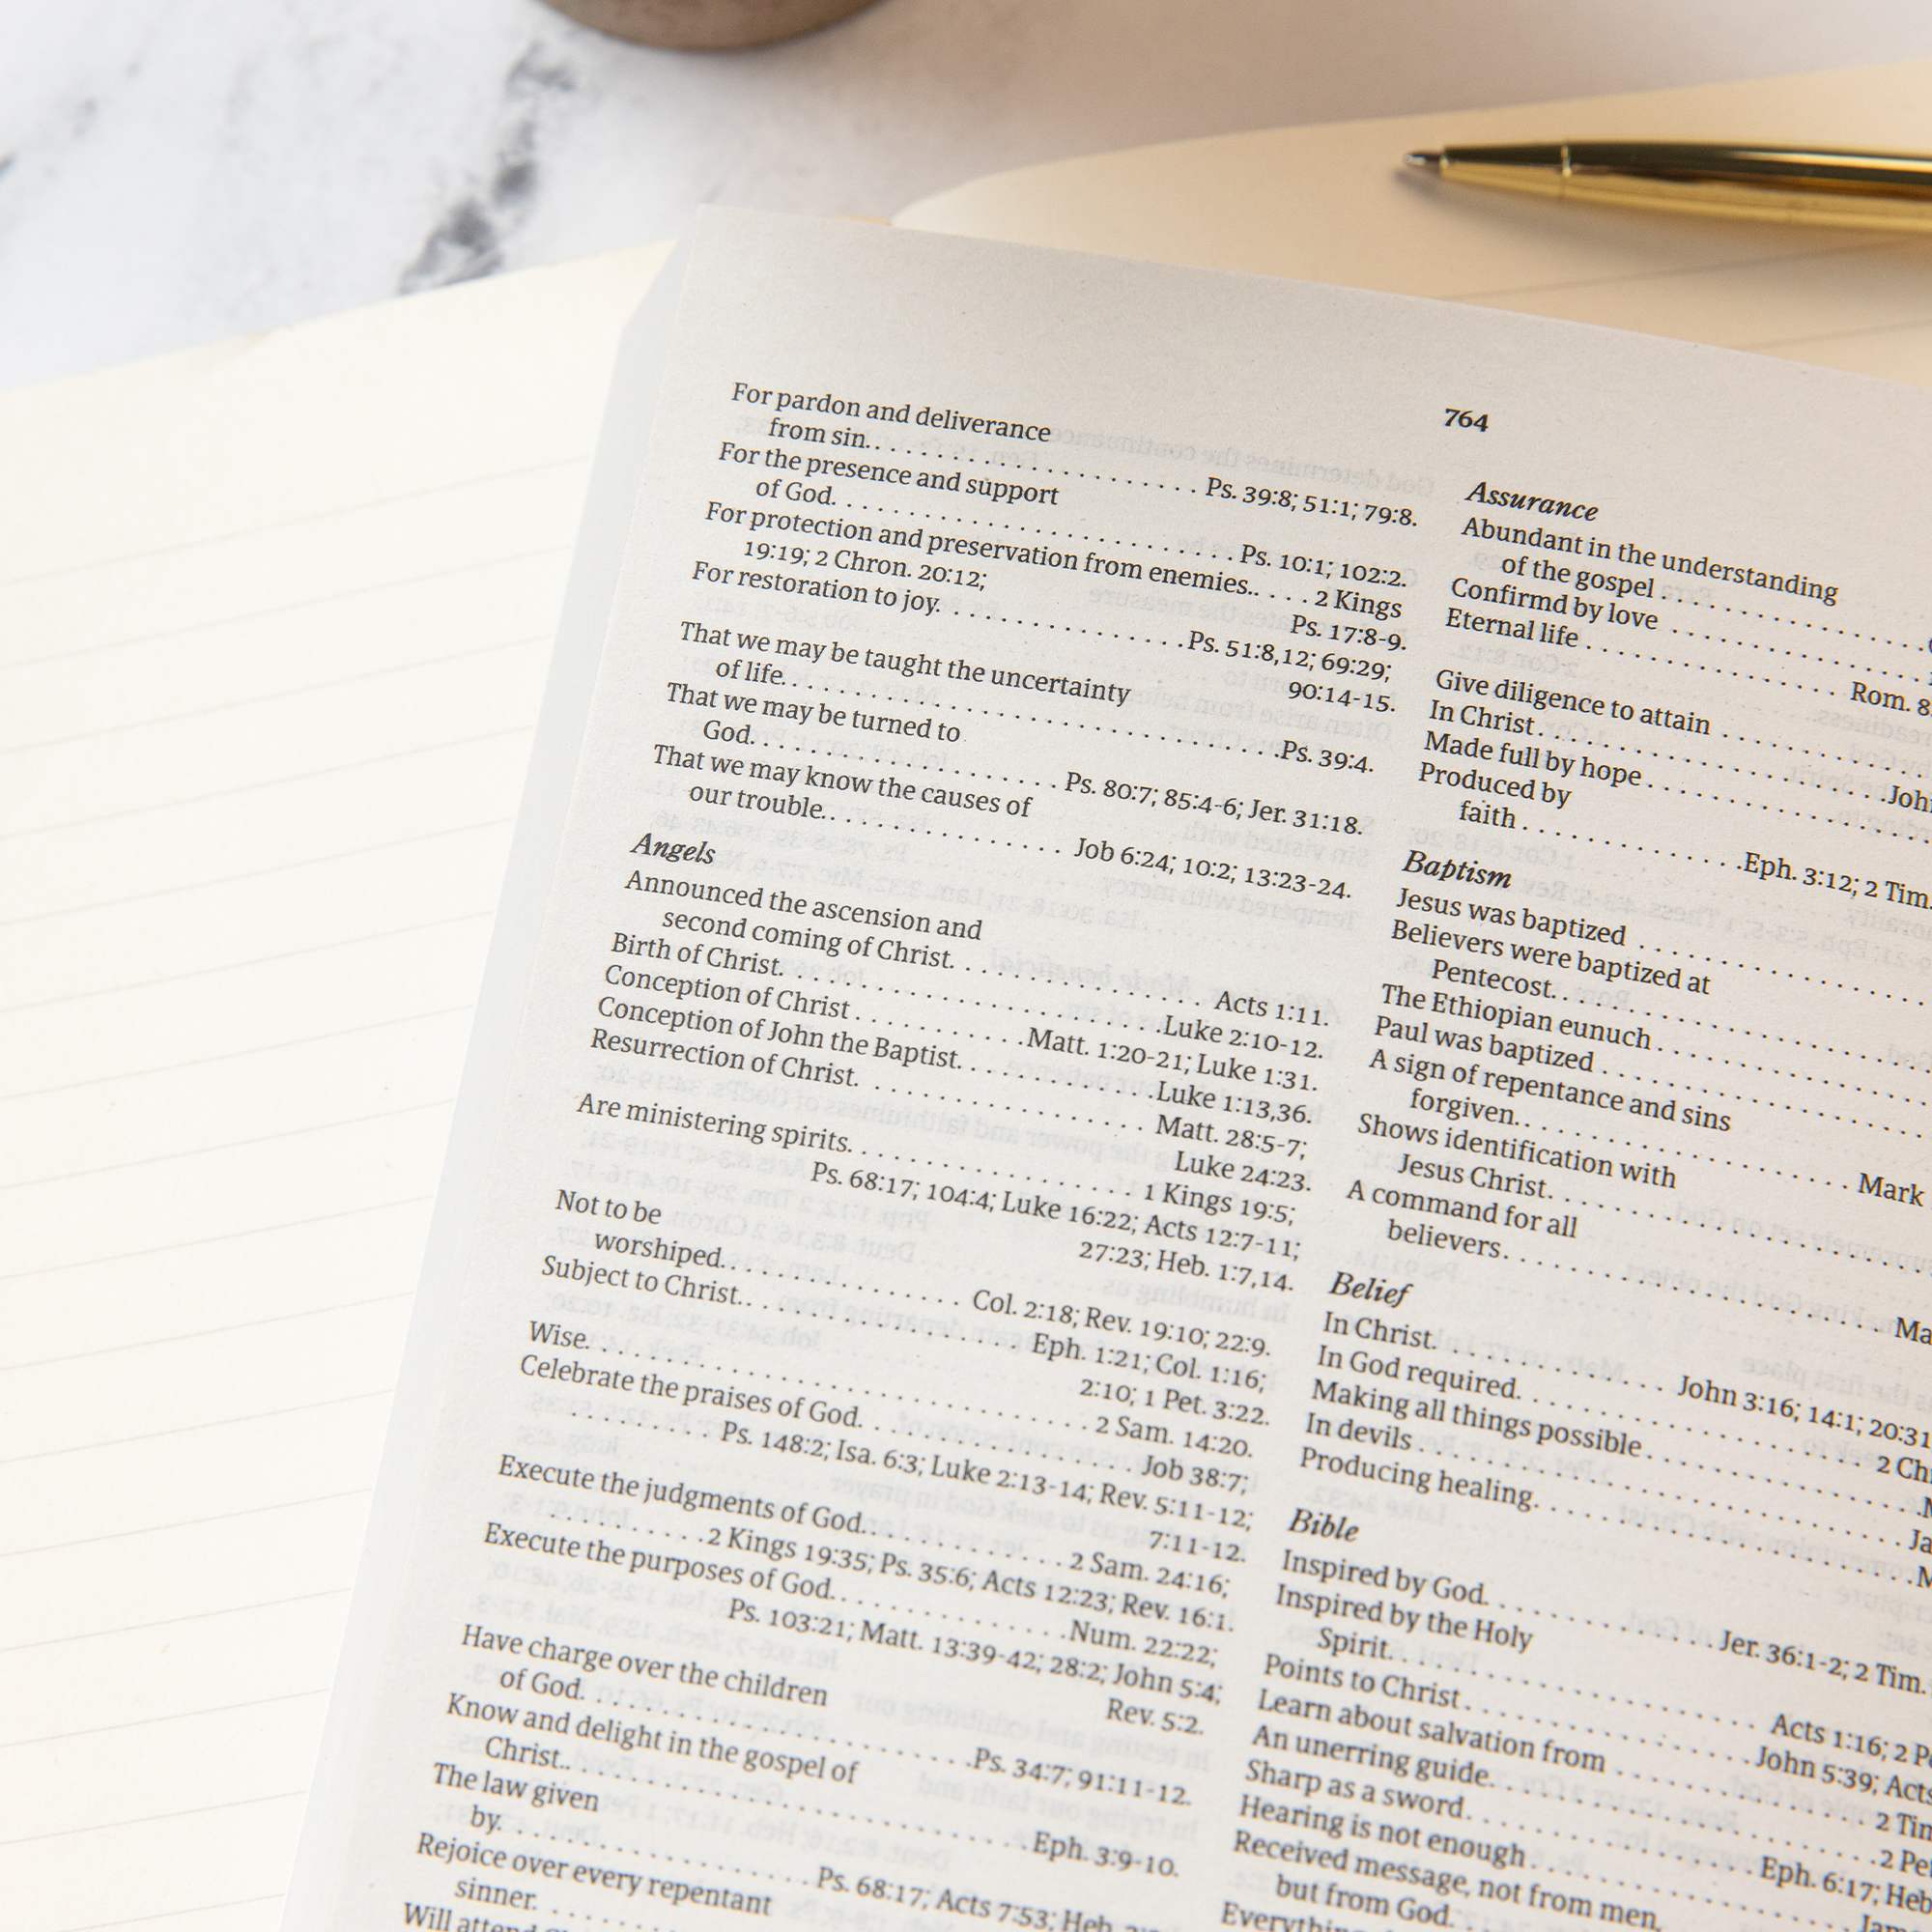 764
For pardon and deliverance
from sin. . . . . . . . . . . . . . . . . . . . . . Ps. 39:8; 51:1; 79:8.
For the presence and support
of God. . . . . . . . . . . . . . . . . . . . . . . . . . Ps. 10:1; 102:2.
For protection and preservation from enemies. . . . . 2 Kings
19:19; 2 Chron. 20:12;
Ps. 17:8-9.
For restoration to joy. . . . . . . . . . . . . . . . .Ps. 51:8,12; 69:29;
90:14-15.
That we may be taught the uncertainty
of life. . . . . . . . . . . . . . . . . . . . . . . . . . . . . . .Ps. 39:4.
That we may be turned to
God. . . . . . . . . . . . . . . . . . . Ps. 80:7; 85:4-6; Jer. 31:18.
That we may know the causes of
our trouble. . . . . . . . . . . . . . . Job 6:24; 10:2; 13:23-24.
Angels
Announced the ascension and
second coming of Christ. . . . . . . . . . . . . . . . . Acts 1:11.
Birth of Christ. . . . . . . . . . . . . . . . . . . . . . . .Luke 2:10-12.
Conception of Christ . . . . . . . . . . . Matt. 1:20-21; Luke 1:31.
Conception of John the Baptist. . . . . . . . . . . .Luke 1:13,36.
Resurrection of Christ. . . . . . . . . . . . . . . . . . Matt. 28:5-7;
Luke 24:23.
Are ministering spirits. . . . . . . . . . . . . . . . . . 1 Kings 19:5;
Ps. 68:17; 104:4; Luke 16:22; Acts 12:7-11;
27:23; Heb. 1:7,14.
Not to be
worshiped. . . . . . . . . . . . . . . Col. 2:18; Rev. 19:10; 22:9.
Subject to Christ. . . . . . . . . . . . . . . . . Eph. 1:21; Col. 1:16;
2:10; 1 Pet. 3:22.
Wise. . . . . . . . . . . . . . . . . . . . . . . . . . . . . . 2 Sam. 14:20.
Celebrate the praises of God. . . . . . . . . . . . . . . . Job 38:7;
. . . . . . . . Ps. 148:2; Isa. 6:3; Luke 2:13-14; Rev. 5:11-12;
7:11-12.
Execute the judgments of God. . . . . . . . . . . . 2 Sam. 24:16;
. . . . . . . . . .2 Kings 19:35; Ps. 35:6; Acts 12:23; Rev. 16:1.
Execute the purposes of God. . . . . . . . . . . . . .Num. 22:22;
Ps. 103:21; Matt. 13:39-42; 28:2; John 5:4;
Rev. 5:2.
Have charge over the children
of God. . . . . . . . . . . . . . . . . . . . . . .Ps. 34:7; 91:11-12.
Know and delight in the gospel of
Christ. . . . . . . . . . . . . . . . . . . . . . . . . . . Eph. 3:9-10.
The law given
by. . . . . . . . . . . . . . . . . . Ps. 68:17; Acts 7:53; Heb.
Rejoice over every repentant
sinner. . . . . . . . .
Will attend
Assurance
Abundant in the understanding
of the gospel . . . . . . . . . . . . . . .
Confirmd by love . . . . . . . . . . . . . .
Eternal life . . . . . . . . . . . . . . . . . Rom. 8
Give diligence to attain . . . . . . . . .
In Christ. . . . . . . . . . . . . . . . . . . . .
Made full by hope . . . . . . . . . . . . . . .
Produced by
faith . . . . . . . . . . . . . .Eph. 3:12; 2 Tim.
Baptism
Jesus was baptized . . . . . . . . . . . . . . .
Believers were baptized at
Pentecost. . . . . . . . . . . . . . . . . . .
The Ethiopian eunuch . . . . . . . . . . . . .
Paul was baptized . . . . . . . . . . . . . . . .
A sign of repentance and sins
forgiven. . . . . . . . . . . . . . . . . . Mark
Shows identification with
Jesus Christ. . . . . . . . . . . . . . . . . .
A command for all
believers. . . . . . . . . . . . . . . . . . . .
Belief
In Christ. . . . . . . . . . . . John 3:16; 14:1; 20:31
In God required. . . . . . . . . . . . . . . . . . 2
Making all things possible . . . . . . . . . . .
In devils . . . . . . . . . . . . . . . . . . . . . .
Producing healing. . . . . . . . . . . . . . . . .
Bible
Inspired by God. . . . . . . . . . . Jer. 36:1-2; 2 Tim.
Inspired by the Holy
Spirit. . . . . . . . . . . . . . . . . . Acts 1:16; 2
Points to Christ . . . . . . . . . . . . . . John 5:39; Acts
Learn about salvation from . . . . . . . . . . . 2
An unerring guide. . . . . . . . . . . . . . . . . 2
Sharp as a sword. . . . . . . . . . . . . . Eph. 6:17;
Hearing is not enough . . . . . . . . . . . . .
Received message, not from men,
but from God. . . .